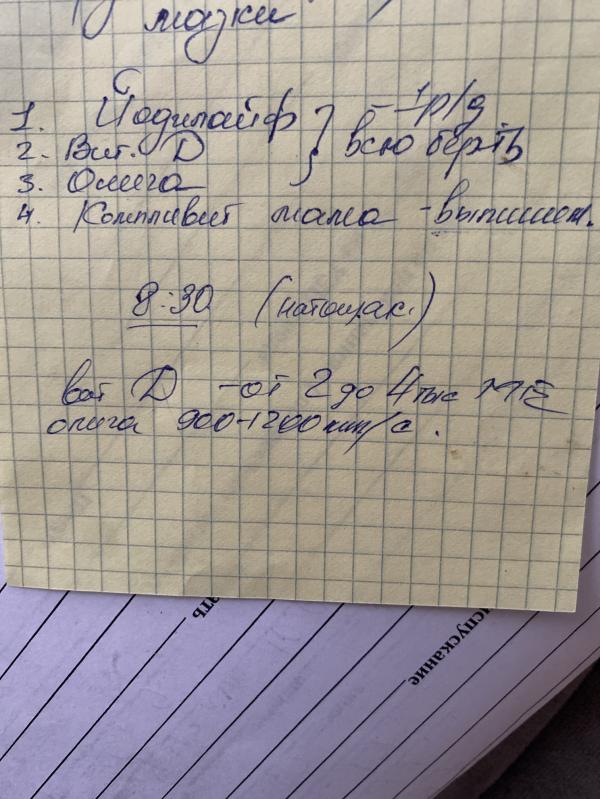 мазки
1. Йодилайф } - 1р/д
2. Вит. D всю бер-ть
3. Омега
4. Компливит мама - выпишем.
8:30 (натощак.)
вит D - от 2 до 4 тыс МЕ
омега 900-1200 /с.
ать
испускание